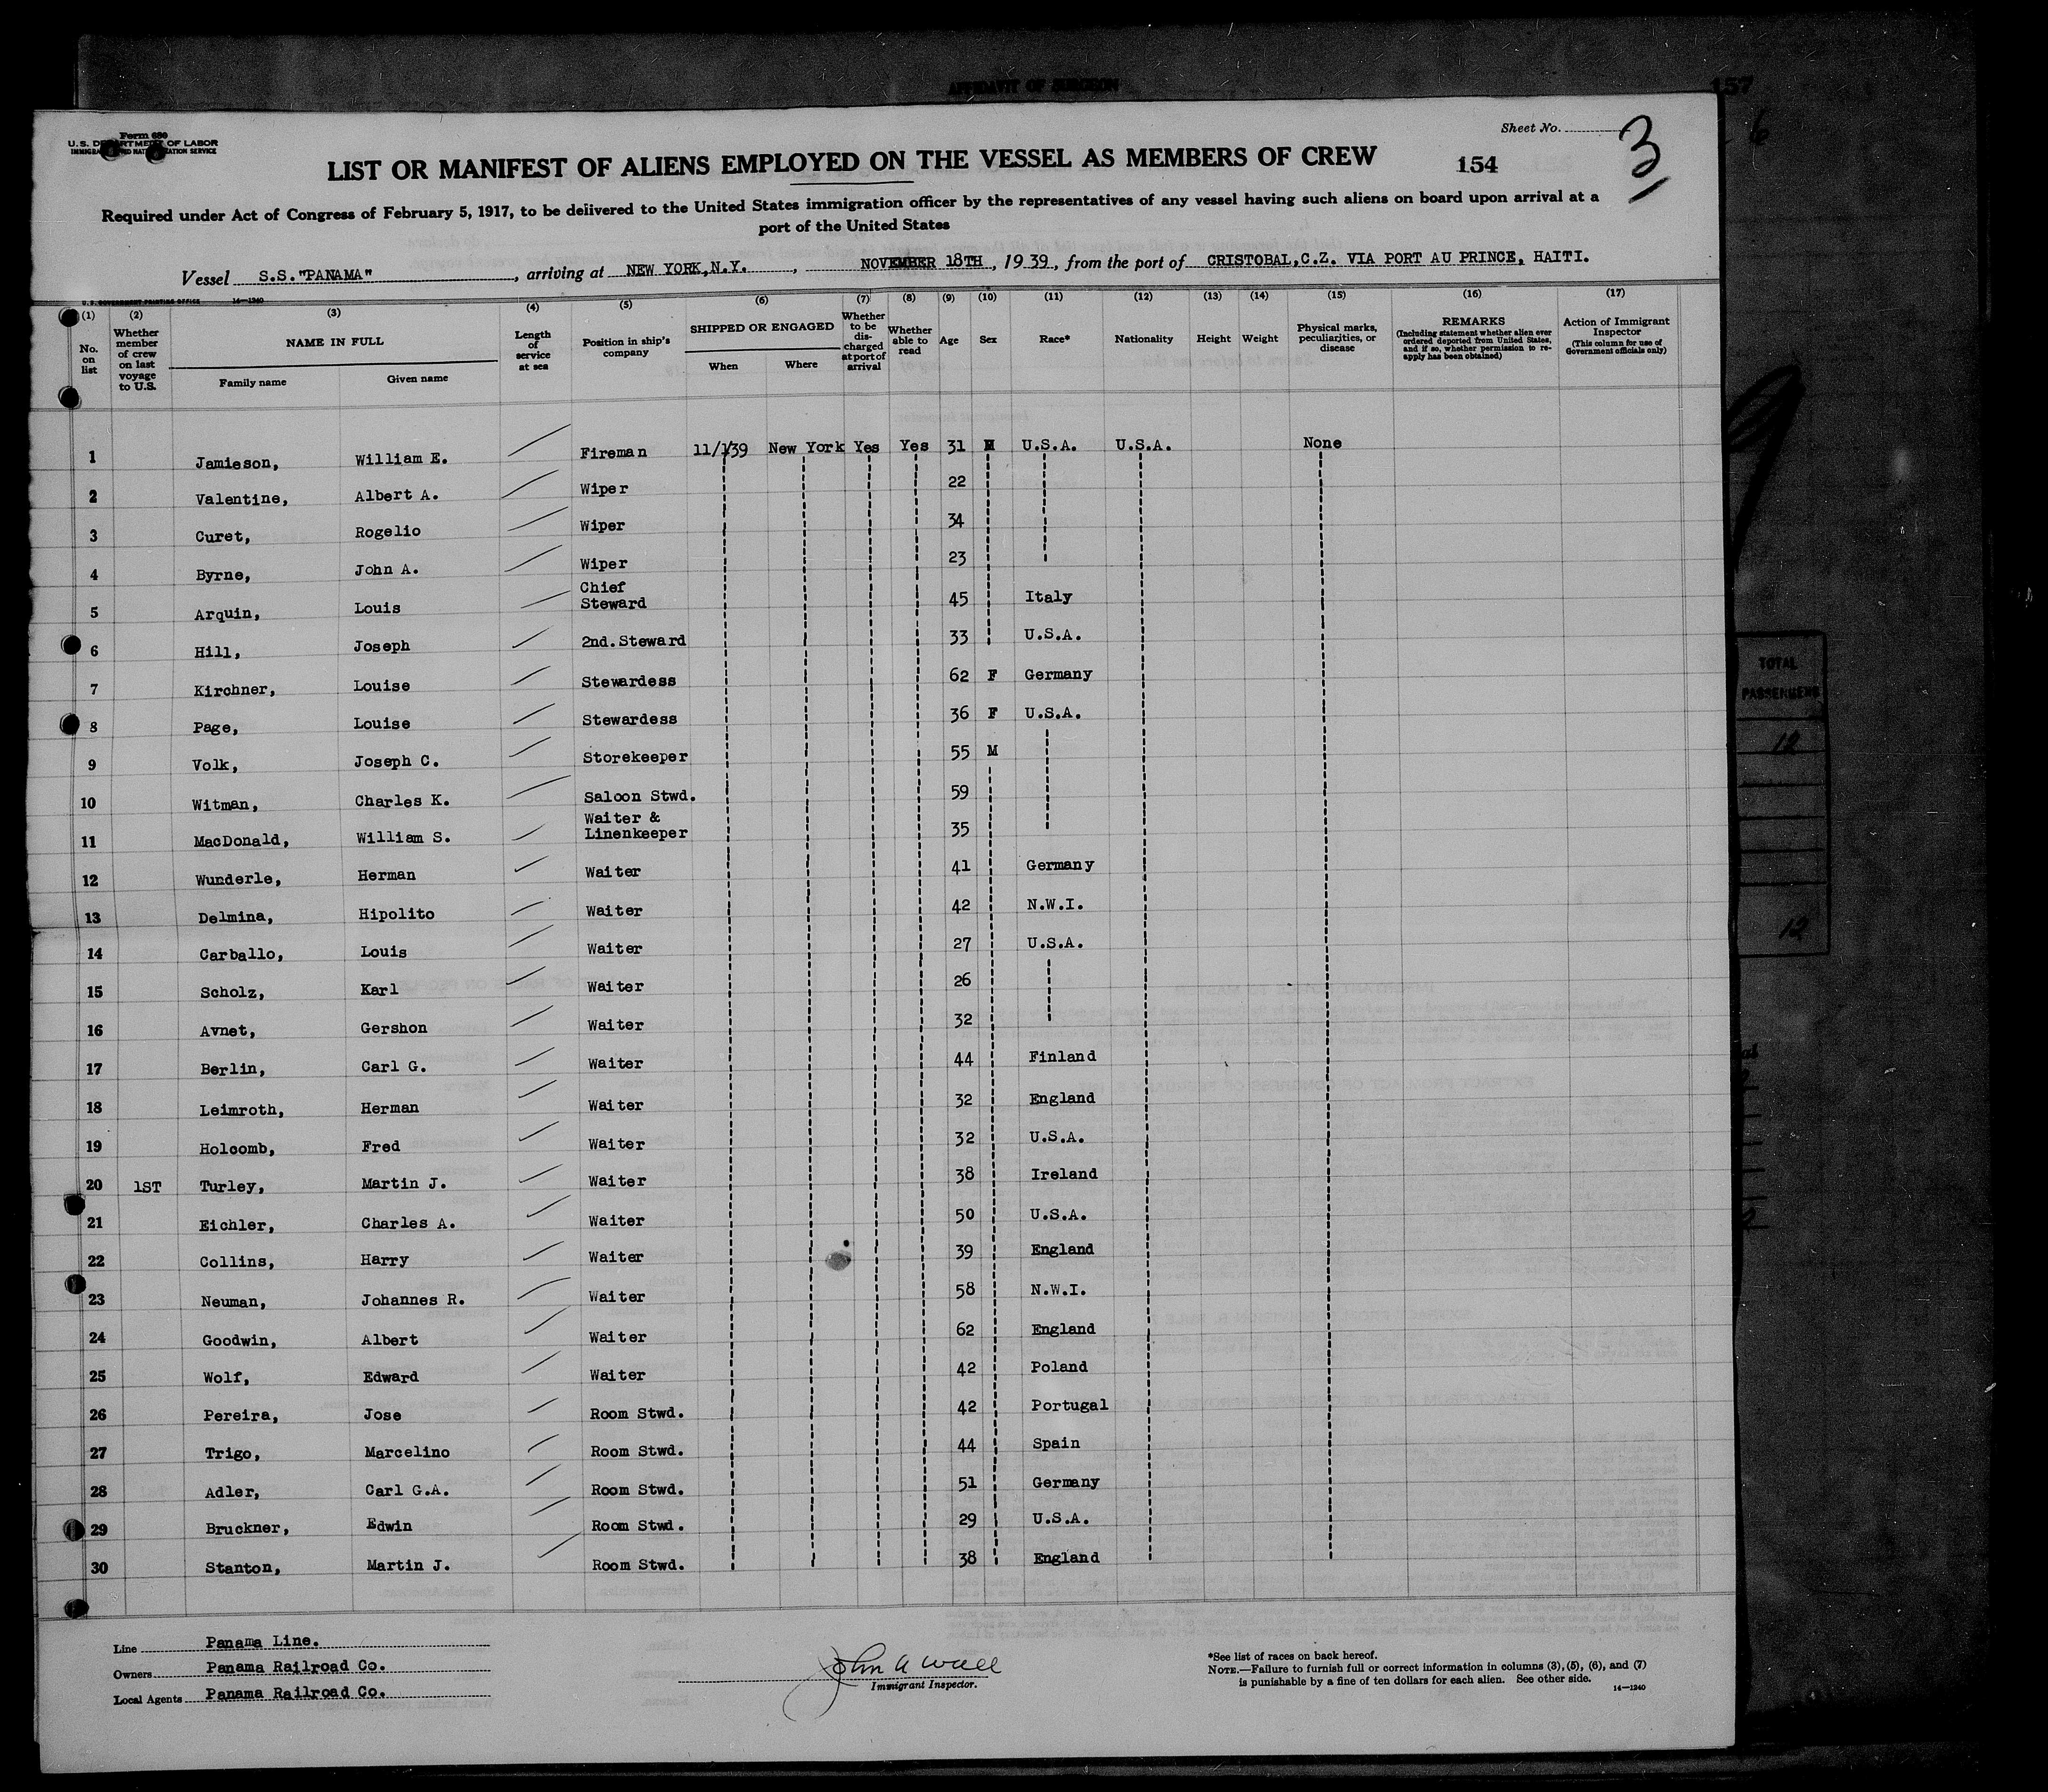 AFFIDAVIT OF SURGEON
157
6
Form 680
U.S. DEPARTMENT OF LABOR
IMMIGRATION AND NATURALIZATION SERVICE
Sheet No.
3
LIST OR MANIFEST OF ALIENS EMPLOYED ON THE VESSEL AS MEMBERS OF CREW
154
Required under Act of Congress of February 5, 1917, to be delivered to the United States immigration officer by the representatives of any vessel having such aliens on board upon arrival at a
port of the United States
Vessel S.S."PANAMA", arriving at NEW YORK,N.Y., NOVEMBER 18TH, 1939, from the port of CRISTOBAL,C.Z. VIA PORT AU PRINCE, HAITI.
U. S. GOVERNMENT PRINTING OFFICE 14—1240
(1) (2) (3) (4) (5) (6) (7) (8) (9) (10) (11) (12) (13) (14) (15) (16) (17)
No. on list
Whether member of crew on last voyage to U.S.
NAME IN FULL
Family name Given name
Length of service at sea
Position in ship's company
SHIPPED OR ENGAGED
When Where
Whether to be discharged at port of arrival
Whether able to read
Age
Sex
Race*
Nationality
Height
Weight
Physical marks, peculiarities, or disease
REMARKS
(Including statement whether alien ever ordered deported from United States, and if so, whether permission to reapply has been obtained)
Action of Immigrant Inspector
(This column for use of Government officials only)
1 Jamieson, William E. Fireman 11/1/39 New York Yes Yes 31 M U.S.A. U.S.A. None
2 Valentine, Albert A. Wiper 22
3 Curet, Rogelio Wiper 34
4 Byrne, John A. Wiper 23
5 Arquin, Louis Chief Steward 45 Italy
6 Hill, Joseph 2nd.Steward 33 U.S.A.
7 Kirchner, Louise Stewardess 62 F Germany
8 Page, Louise Stewardess 36 F U.S.A.
9 Volk, Joseph C. Storekeeper 55 M
10 Witman, Charles K. Saloon Stwd. 59
11 MacDonald, William S. Waiter & Linenkeeper 35
12 Wunderle, Herman Waiter 41 Germany
13 Delmina, Hipolito Waiter 42 N.W.I.
14 Carballo, Louis Waiter 27 U.S.A.
15 Scholz, Karl Waiter 26
16 Avnet, Gershon Waiter 32
17 Berlin, Carl G. Waiter 44 Finland
18 Leimroth, Herman Waiter 32 England
19 Holcomb, Fred Waiter 32 U.S.A.
20 1ST Turley, Martin J. Waiter 38 Ireland
21 Eichler, Charles A. Waiter 50 U.S.A.
22 Collins, Harry Waiter 39 England
23 Neuman, Johannes R. Waiter 58 N.W.I.
24 Goodwin, Albert Waiter 62 England
25 Wolf, Edward Waiter 42 Poland
26 Pereira, Jose Room Stwd. 42 Portugal
27 Trigo, Marcelino Room Stwd. 44 Spain
28 Adler, Carl G.A. Room Stwd. 51 Germany
29 Bruckner, Edwin Room Stwd. 29 U.S.A.
30 Stanton, Martin J. Room Stwd. 38 England
TOTAL
PASSENGERS
12
12
Line Panama Line.
Owners Panama Railroad Co.
Local Agents Panama Railroad Co.
John A Wall
Immigrant Inspector.
*See list of races on back hereof.
NOTE.—Failure to furnish full or correct information in columns (3), (5), (6), and (7)
is punishable by a fine of ten dollars for each alien. See other side.
14—1240